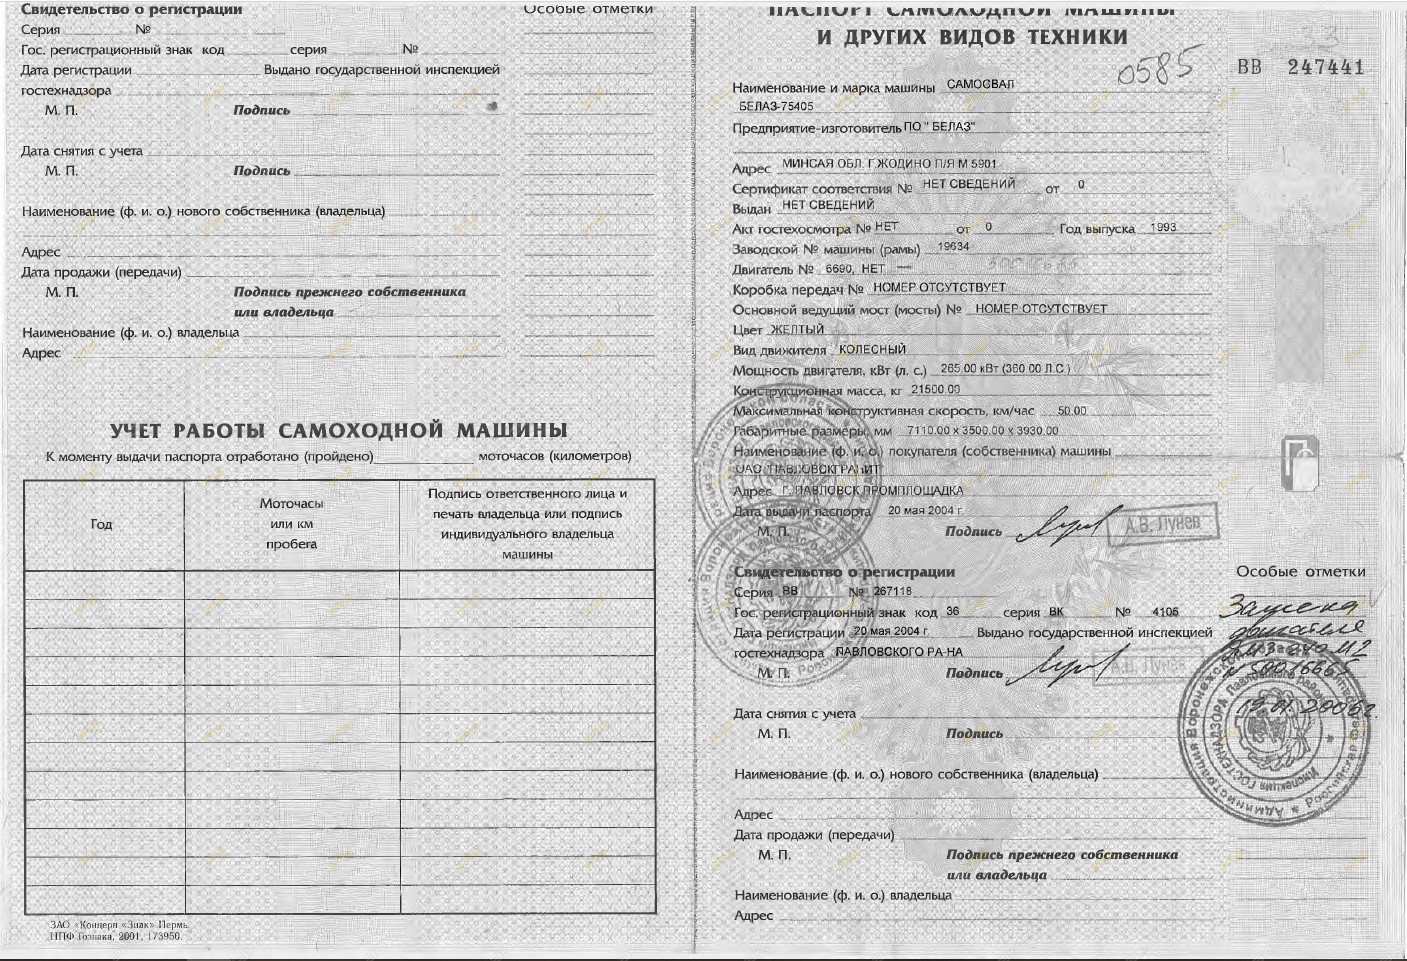 Свидетельство о регистрации
Серия №
Гос. регистрационный знак код серия №
Дата регистрации Выдано государственной инспекцией
гостехнадзора
М. П. Подпись
Дата снятия с учета
М. П. Подпись
Наименование (ф. и. о.) нового собственника (владельца)
Адрес
Дата продажи (передачи)
М. П. Подпись прежнего собственника
или владельца
Наименование (ф. и. о.) владельца
Адрес
Особые отметки
УЧЕТ РАБОТЫ САМОХОДНОЙ МАШИНЫ
К моменту выдачи паспорта отработано (пройдено) моточасов (километров)
Год
Моточасы
или км
пробега
Подпись ответственного лица и
печать владельца или подпись
индивидуального владельца
машины
ЗАО «Концерн «Знак» Пермь.
ППФ Гознака, 2001, 173950.
ПАСПОРТ САМОХОДНОЙ МАШИНЫ
И ДРУГИХ ВИДОВ ТЕХНИКИ
0585
ВВ 247441
Наименование и марка машины САМОСВАЛ
БЕЛАЗ-75405
Предприятие-изготовитель ПО " БЕЛАЗ"
Адрес МИНСАЯ ОБЛ. Г.ЖОДИНО П/Я М 5901
Сертификат соответствия № НЕТ СВЕДЕНИЙ от 0
Выдан НЕТ СВЕДЕНИЙ
Акт гостехосмотра № НЕТ от 0 Год выпуска 1993
Заводской № машины (рамы) 19634
Двигатель № 6690, НЕТ
Коробка передач № НОМЕР ОТСУТСТВУЕТ
Основной ведущий мост (мосты) № НОМЕР ОТСУТСТВУЕТ
Цвет ЖЕЛТЫЙ
Вид движителя КОЛЕСНЫЙ
Мощность двигателя, кВт (л. с.) 265.00 кВт (360.00 Л.С.)
Конструкционная масса, кг 21500.00
Максимальная конструктивная скорость, км/час 50.00
Габаритные размеры, мм 7110.00 x 3500.00 x 3930.00
Наименование (ф. и. о.) покупателя (собственника) машины
ОАО "ПАВЛОВСКГРАНИТ"
Адрес Г. ПАВЛОВСК ПРОМПЛОЩАДКА
Дата выдачи паспорта 20 мая 2004 г.
М. П. Подпись А.В. Лунев
Свидетельство о регистрации
Серия ВВ № 267118
Гос. регистрационный знак код 36 серия ВК № 4105
Дата регистрации 20 мая 2004 г. Выдано государственной инспекцией
гостехнадзора ПАВЛОВСКОГО РА-НА
М. П. Подпись А.В. Лунев
Дата снятия с учета
М. П. Подпись
Наименование (ф. и. о.) нового собственника (владельца)
Адрес
Дата продажи (передачи)
М. П. Подпись прежнего собственника
или владельца
Наименование (ф. и. о.) владельца
Адрес
Особые отметки
двигателя